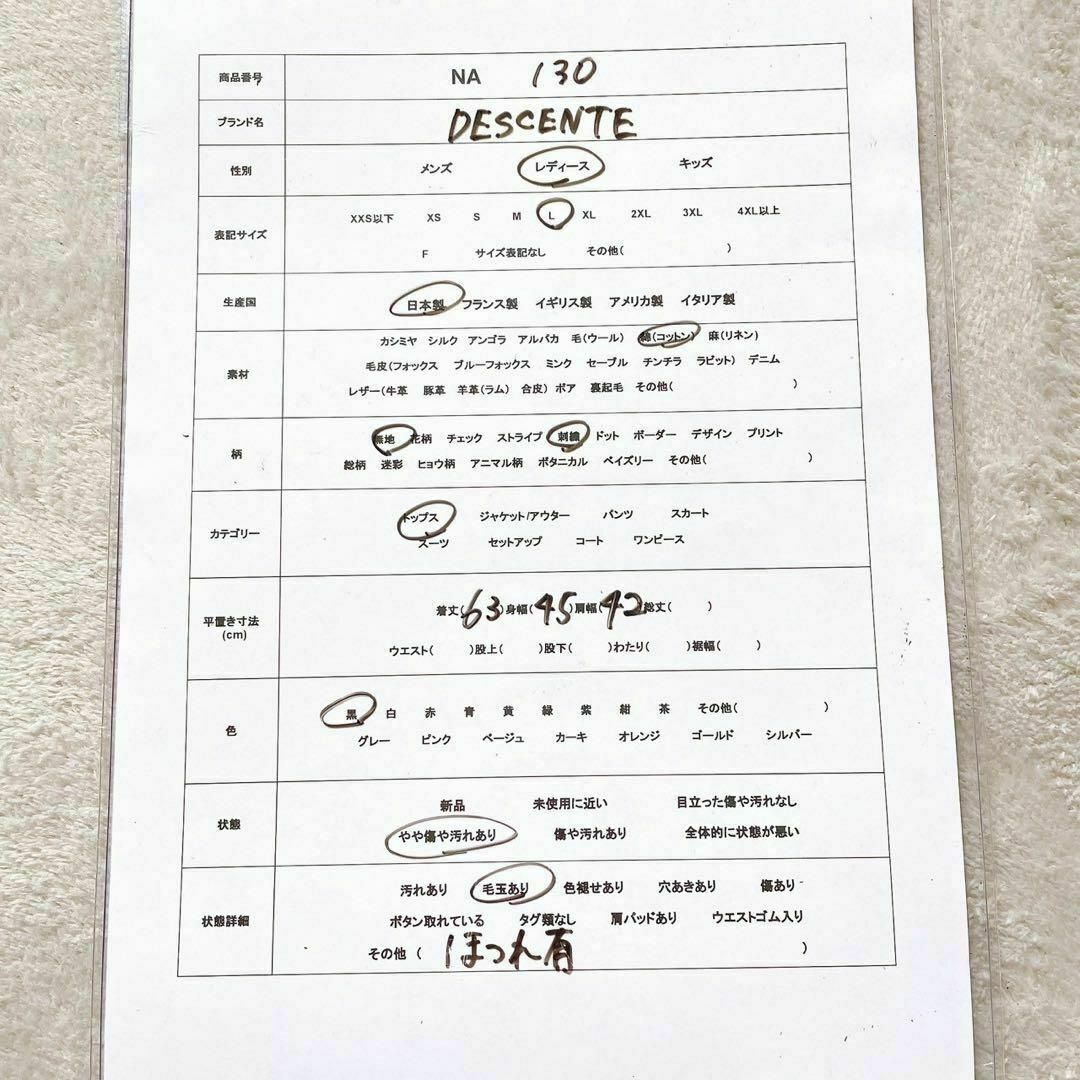 商品番号 NA 130
ブランド名 DESCENTE
性別 メンズ レディース キッズ
表記サイズ
XXS以下 XS S M L XL 2XL 3XL 4XL以上
F サイズ表記なし その他( )
生産国 日本製 フランス製 イギリス製 アメリカ製 イタリア製
素材
カシミヤ シルク アンゴラ アルパカ 毛(ウール) 綿(コットン) 麻(リネン)
毛皮(フォックス ブルーフォックス ミンク セーブル チンチラ ラビット) デニム
レザー(牛革 豚革 羊革(ラム) 合皮) ボア 裏起毛 その他( )
柄
無地 花柄 チェック ストライプ 刺繍 ドット ボーダー デザイン プリント
総柄 迷彩 ヒョウ柄 アニマル柄 ボタニカル ペイズリー その他( )
カテゴリー
トップス ジャケット/アウター パンツ スカート
スーツ セットアップ コート ワンピース
平置き寸法
(cm)
着丈(63)身幅(45)肩幅(42)総丈( )
ウエスト( )股上( )股下( )わたり( )裾幅( )
色
黒 白 赤 青 黄 緑 紫 紺 茶 その他( )
グレー ピンク ベージュ カーキ オレンジ ゴールド シルバー
状態
新品 未使用に近い 目立った傷や汚れなし
やや傷や汚れあり 傷や汚れあり 全体的に状態が悪い
状態詳細
汚れあり 毛玉あり 色褪せあり 穴あきあり 傷あり
ボタン取れている タグ類なし 肩パッドあり ウエストゴム入り
その他 ( ほつれ有 )